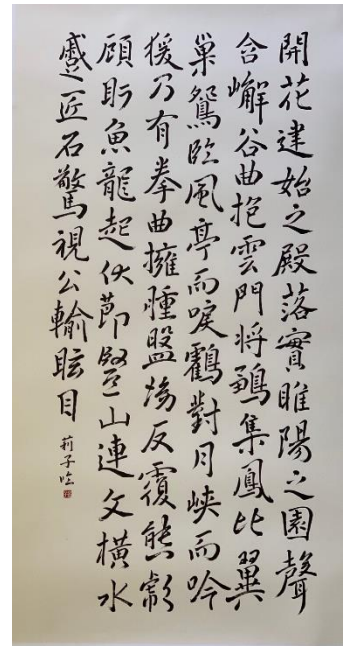 開花建始之殿落實睢陽之園聲
含嶰谷曲抱雲門將鶵集鳳比翼
巢鴛臨風亭而唳鶴對月峽而吟
猨乃有拳曲擁腫盤坳反覆熊彪
顧盻魚龍起伏節豎山連文橫水
蹙匠石驚視公輸眩目
莉子